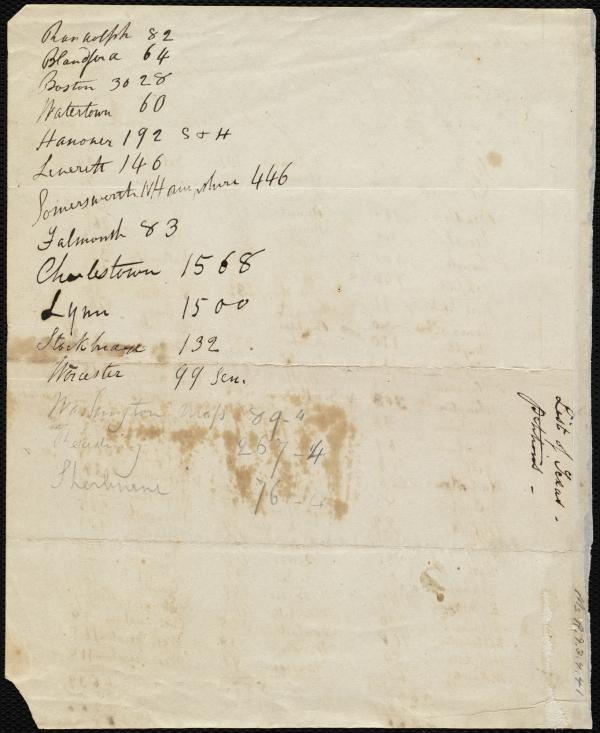 Randolph 82
Blandford 64
Boston 3028
Watertown 60
Hanover 192 S & H
Leverett 146
Somersworth N Hampshire 446
Falmouth 83
Charlestown 1568
Lynn 1500
Stockbridge 132
Worcester 99 Sen.
Washington Mass 89-4
Reading 267-4
Sherburne 76-4
List of Texas -
petitions -
Ms. A.9.2.4.41